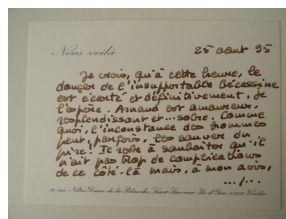 Nous voilà
25 aout 95
Je crois, qu'à cette heure, le
danger de l'insupportable bécassine
est écarté et définitivement, je
l'espère. Arnaud est amoureux,
resplendissant et... sobre. Comme
quoi, l'inconstance des hommes
peut, parfois, les sauver du
pire! Je reste à souhaiter qu'il
n'ait pas trop de complications
de ce côté-là mais, à mon avis,
.../...
rue Notre-Dame de la Blanche Saint-Sauveur Ile d'Yeu 85350 Vendée